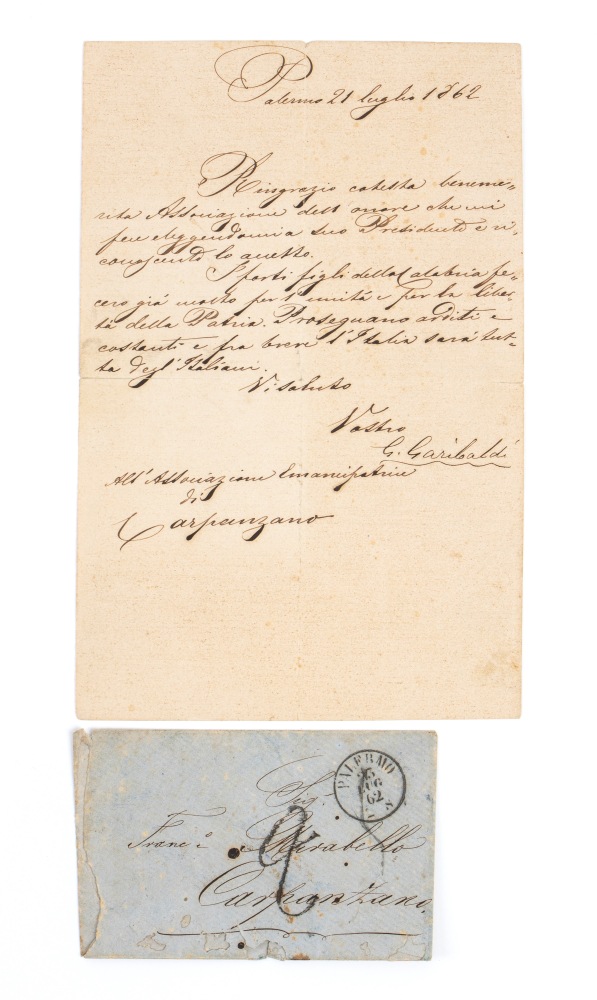 Palermo 21 luglio 1862
Ringrazio cotesta beneme-
rita Associazione dell'onore che mi
fece eleggendomi a suo Presidente e ri-
conoscente lo accetto.
I forti figli della Calabria fe-
cero già molto per l'unità e per la liber-
tà della Patria. Proseguano arditi e
costanti e fra breve l'Italia sarà tut-
ta degl'Italiani.
Vi saluto
Vostro
G. Garibaldi
All'Associazione Emancipatrice
di
Carpanzano
PALERMO
LUG
62
Sig.
Franc.º Mirabello
Carpanzano